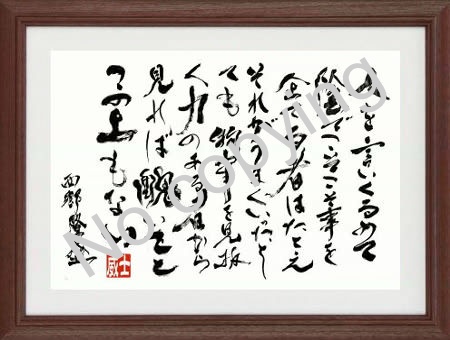 人を言いくるめて
陰でこそこそ事を
企てる者はたとえ
それがうまくいったとし
ても物事を見抜
く力のある人から
見れば醜いこと
この上もない
西郷隆盛
No Copying